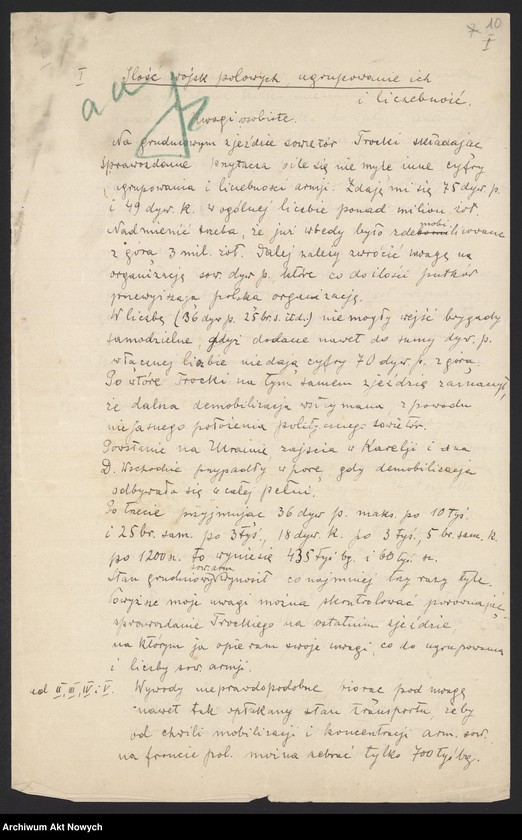 10
I
I Ilość wojsk polowych, ugrupowanie ich
i liczebność.
Uwagi osobiste.
Na grudniowym zjeździe sowietów Trocki składając
sprawozdanie przytacza o ile się nie mylę inne cyfry
ugrupowania i liczebności armji. Zdają mi się 75 dyw. p.
i 49 dyw. k. w ogólnej liczbie ponad miljon żoł.
Nadmienić trzeba, że już wtedy było zdemobilizowane
z górą 3 mil. żoł. Dalej należy zwrócić uwagę na
organizację sow. dyw. p., które co do ilości pułków
przewyższają polską organizację.
W liczbę (36 dyw. p. 25 br. s. itd.) nie mogły wejść brygady
samodzielne, gdyż dodane nawet do sumy dyw. p.
w łącznej liczbie nie dają cyfry 70 dyw. p. z górą.
Po wtóre Trocki na tym samem zjeździe zaznaczył,
że dalsza demobilizacja wstrzymana z powodu
niejasnego położenia politycznego sowietów.
Powstanie na Ukrainie, zajścia w Karelji i na
D. Wschodzie przypadły w porę, gdy demobilizacja
odbywała się w całej pełni.
Po trzecie przyjmując 36 dyw. p. maks. po 10 tyś.
i 25 br. sam. po 3 tyś., 18 dyw. k. po 3 tyś., 5 br. sam. k.
po 1200 n. to wyniesie 435 tyś bg. i 60 tyś. sz.
Stan grudniowy sow. arm. wynosił conajmniej trzy razy tyle.
Powyższe moje uwagi można skontrolować porównując
sprawozdanie Trockiego na ostatnim zjeździe,
na którym ja opieram swoje uwagi, co do ugrupowania
i liczby sow. armji.
ad II, III, IV i V. Wywody nieprawdopodobne biorąc pod uwagę
nawet tak opłakany stan transportu żeby
od chwili mobilizacji i koncentracji arm. sow.
na froncie pol. można zebrać tylko 700 tyś bg.
Archiwum Akt Nowych